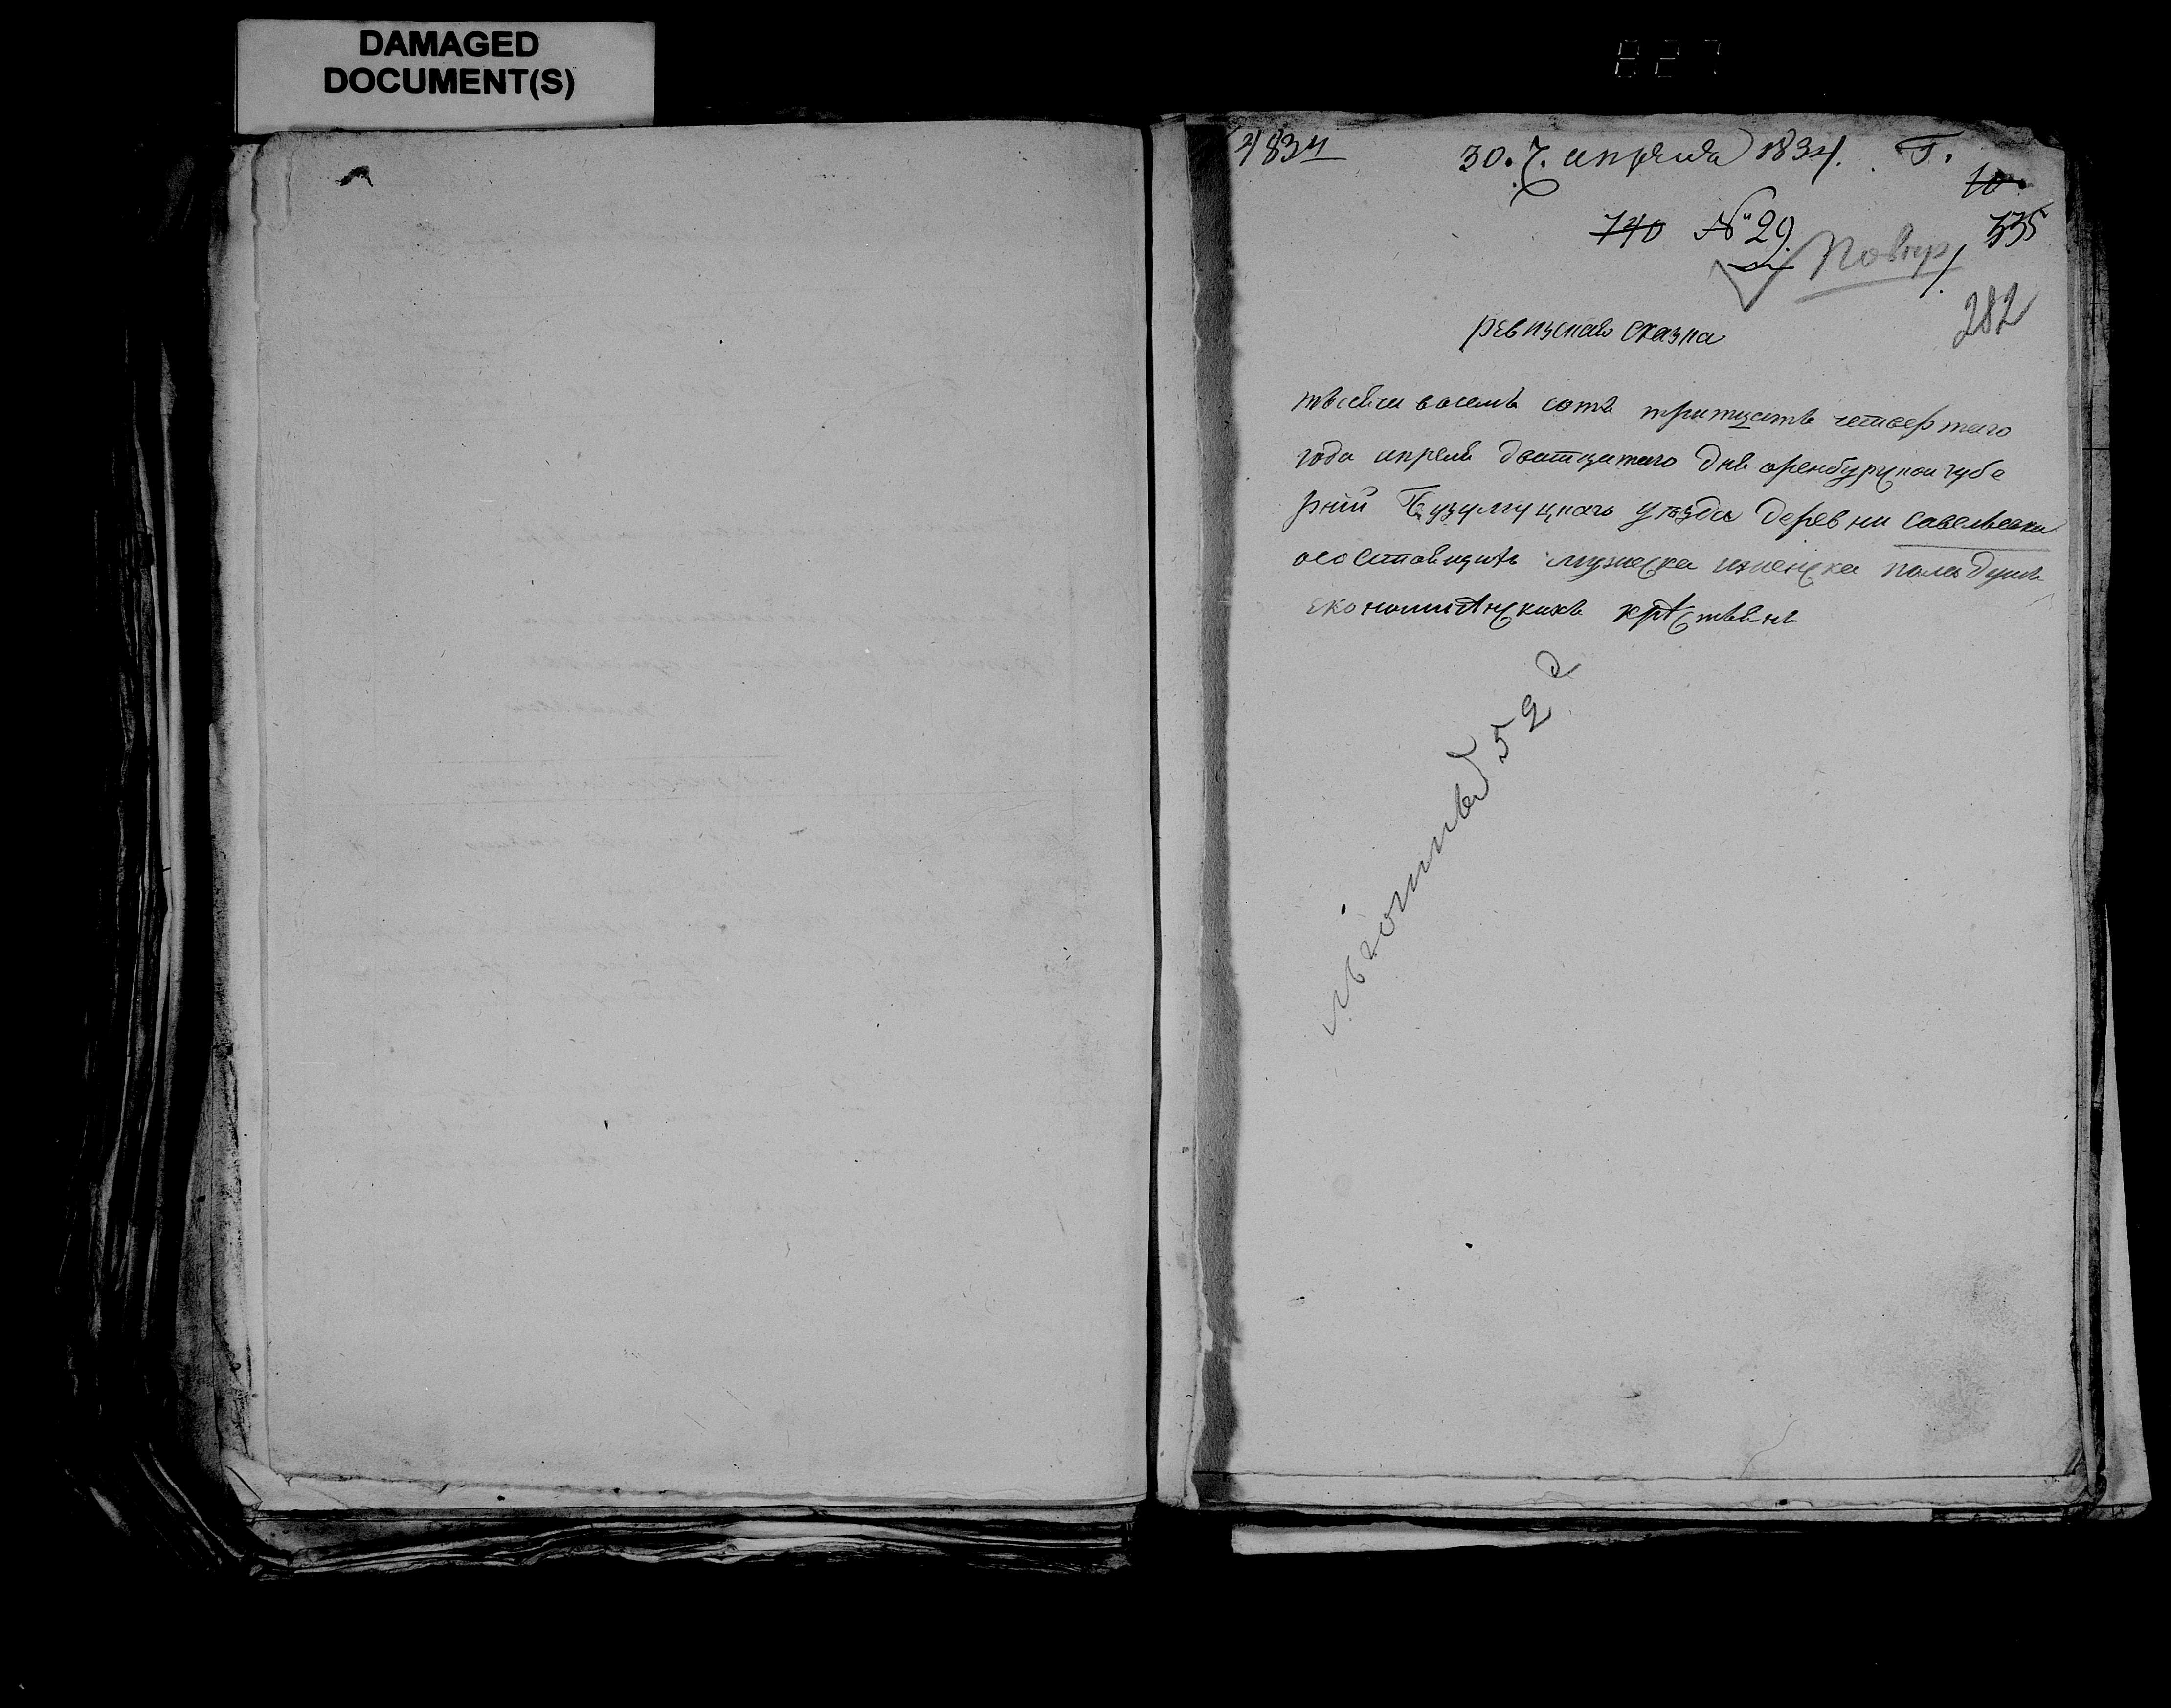 DAMAGED
DOCUMENT(S)
827
1834
30. апреля 1834. Г.
10.
740 № 29.
335
Повер
282
ревизская сказка
тысяча восемь сотъ тритцать четвертаго
года апреля дватцатаго дня оренбургской губе
рнии Бузулуцкаго уезда деревни савельевки
осостоящихъ мужеска иженска пола душъ
економическихъ крестьянъ
льготныхъ 52 д